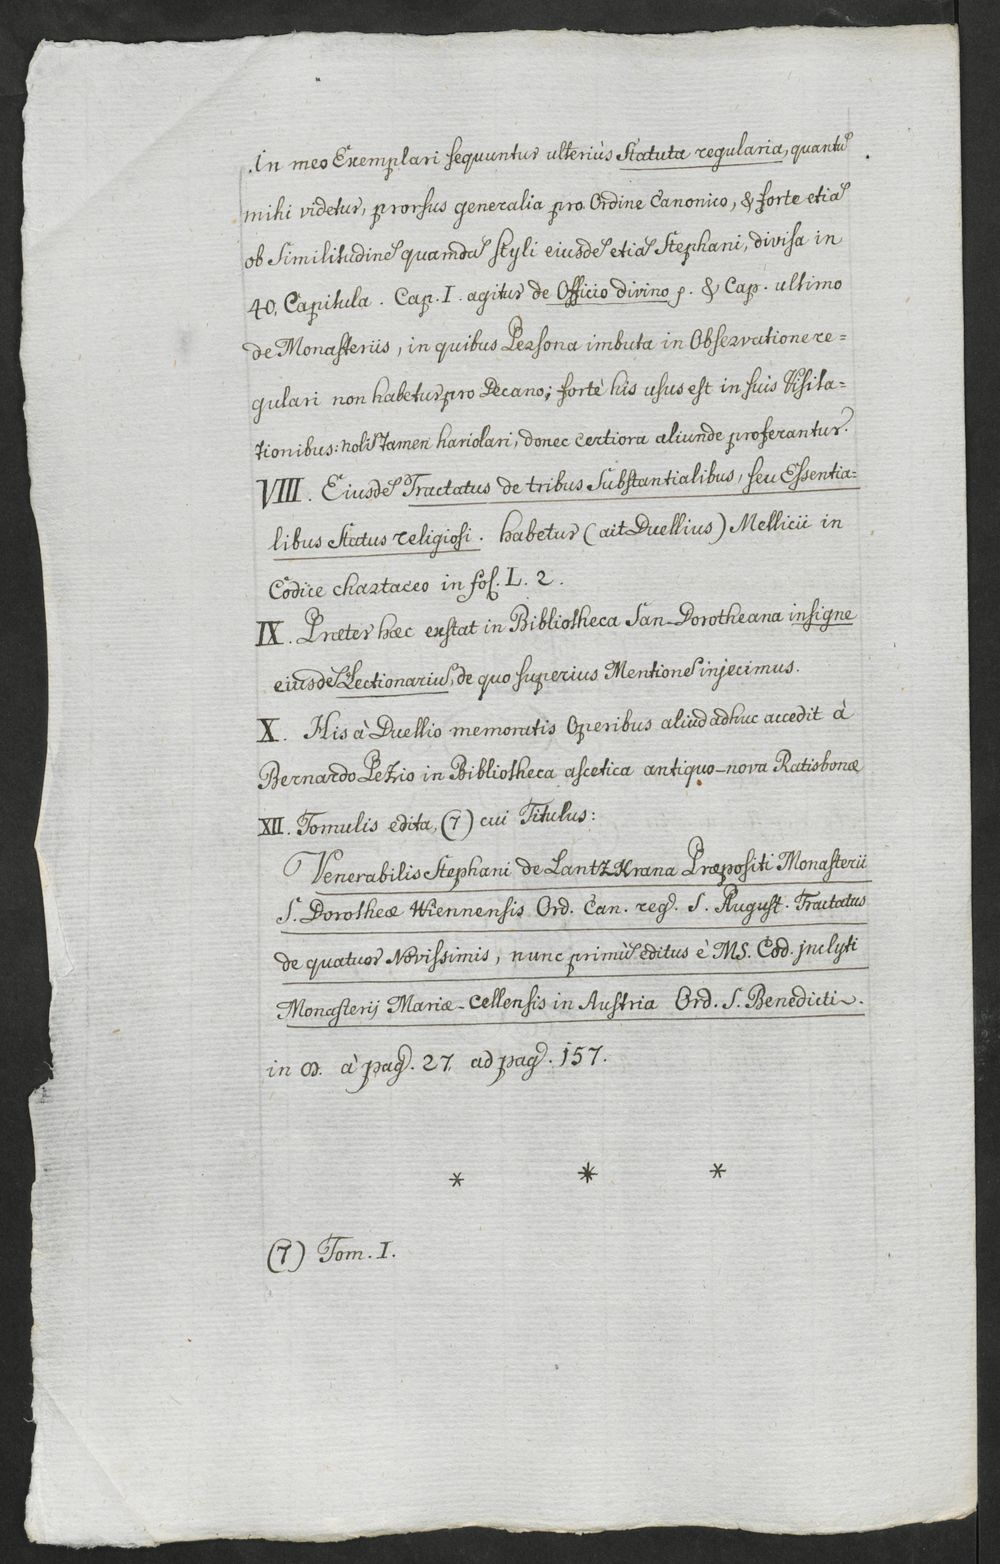 In meo Exemplari sequuntur ulteriùs Statuta regularia, quantũ
mihi videtur, prorsus generalia pro Ordine Canonico, & forte etiã
ob Similitudinẽ quamdã styli eiusdẽ etiã Stephani, divisa in
40. Capitula. Cap. I. agitur de Officio divino p. & Cap. ultimo
de Monasteriis, in quibus Persona imbuta in Observatione re=
gulari non habetur pro Decano; fortè his usus est in suis Visita=
tionibus: nolĩ tamen hariolari, donec certiora aliunde proferantur.
VIII. Eiusdẽ Tractatus de tribus Substantialibus, seu Essentia=
libus Status religiosi. habetur (ait Duellius) Mellicii in
Codice chartaceo in fol. L. 2.
IX. Præter hæc exstat in Bibliotheca San-Dorotheana insigne
eiusdẽ Lectionariũ, de quo superius Mentionẽ injecimus.
X. His à Duellio memoratis Operibus aliud adhuc accedit à
Bernardo Pezio in Bibliotheca ascetica antiquo-nova Ratisbonæ
XII. Tomulis edita, (7) cui Titulus:
Venerabilis Stephani de Lantzkrana Præpositi Monasterii
S. Dorotheæ Wiennensis Ord. Can. reg. S. August. Tractatus
de quatuor Novissimis, nunc primũ editus è MS. Cod. jnclyti
Monasterij Mariæ-Cellensis in Austria Ord. S. Benedicti.
in 8. à pag. 27. ad pag. 157.
* * *
(7) Tom. I.